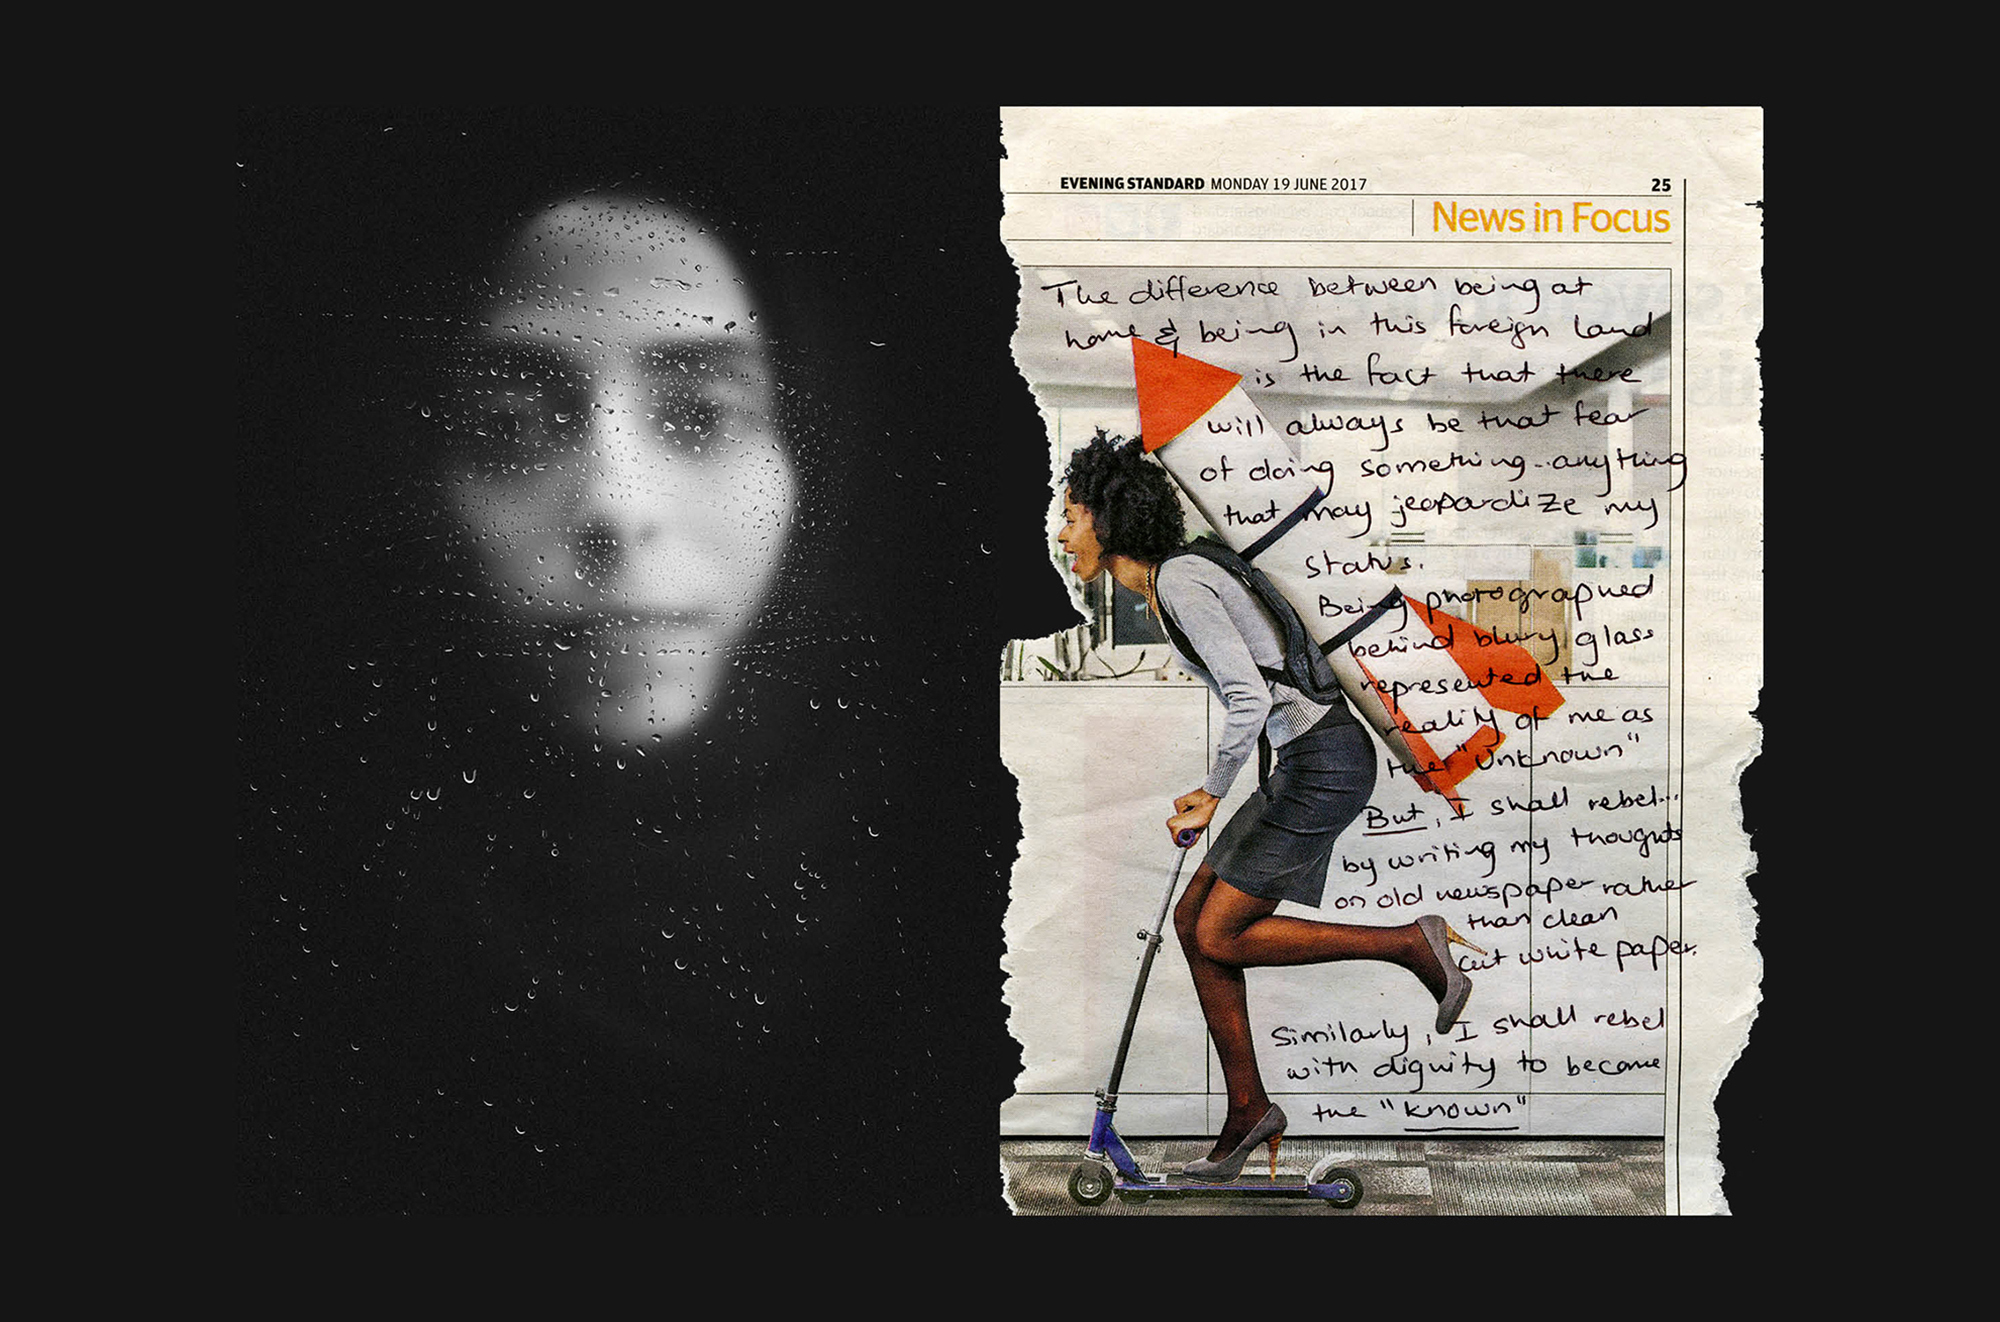 EVENING STANDARD MONDAY 19 JUNE 2017 25
News in Focus
The difference between being at
home & being in this foreign land
is the fact that there
will always be that fear
of doing something...anything
that may jeopardize my
status.
Being photographed
behind blurry glass
represented the
reality of me as
the "Unknown"
But, I shall rebel...
by writing my thoughts
on old newspaper rather
than clean
cut white paper.
Similarly, I shall rebel
with dignity to become
the "known"